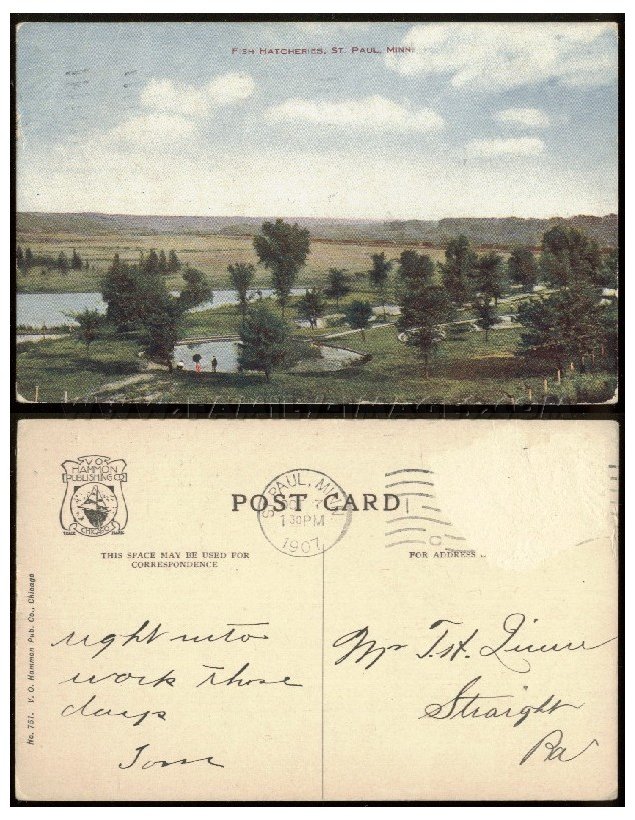 FISH HATCHERIES, ST. PAUL, MINN.
V.O.
HAMMON
PUBLISHING CO
CHICAGO
TRADE MARK
POST CARD
ST. PAUL, MINN.
OCT
1 30 PM
1907
THIS SPACE MAY BE USED FOR
CORRESPONDENCE
FOR ADDRESS
No. 751. V. O. Hammon Pub. Co., Chicago
right into
work those
days
Tom
Mr T.H.
Straight
Pa